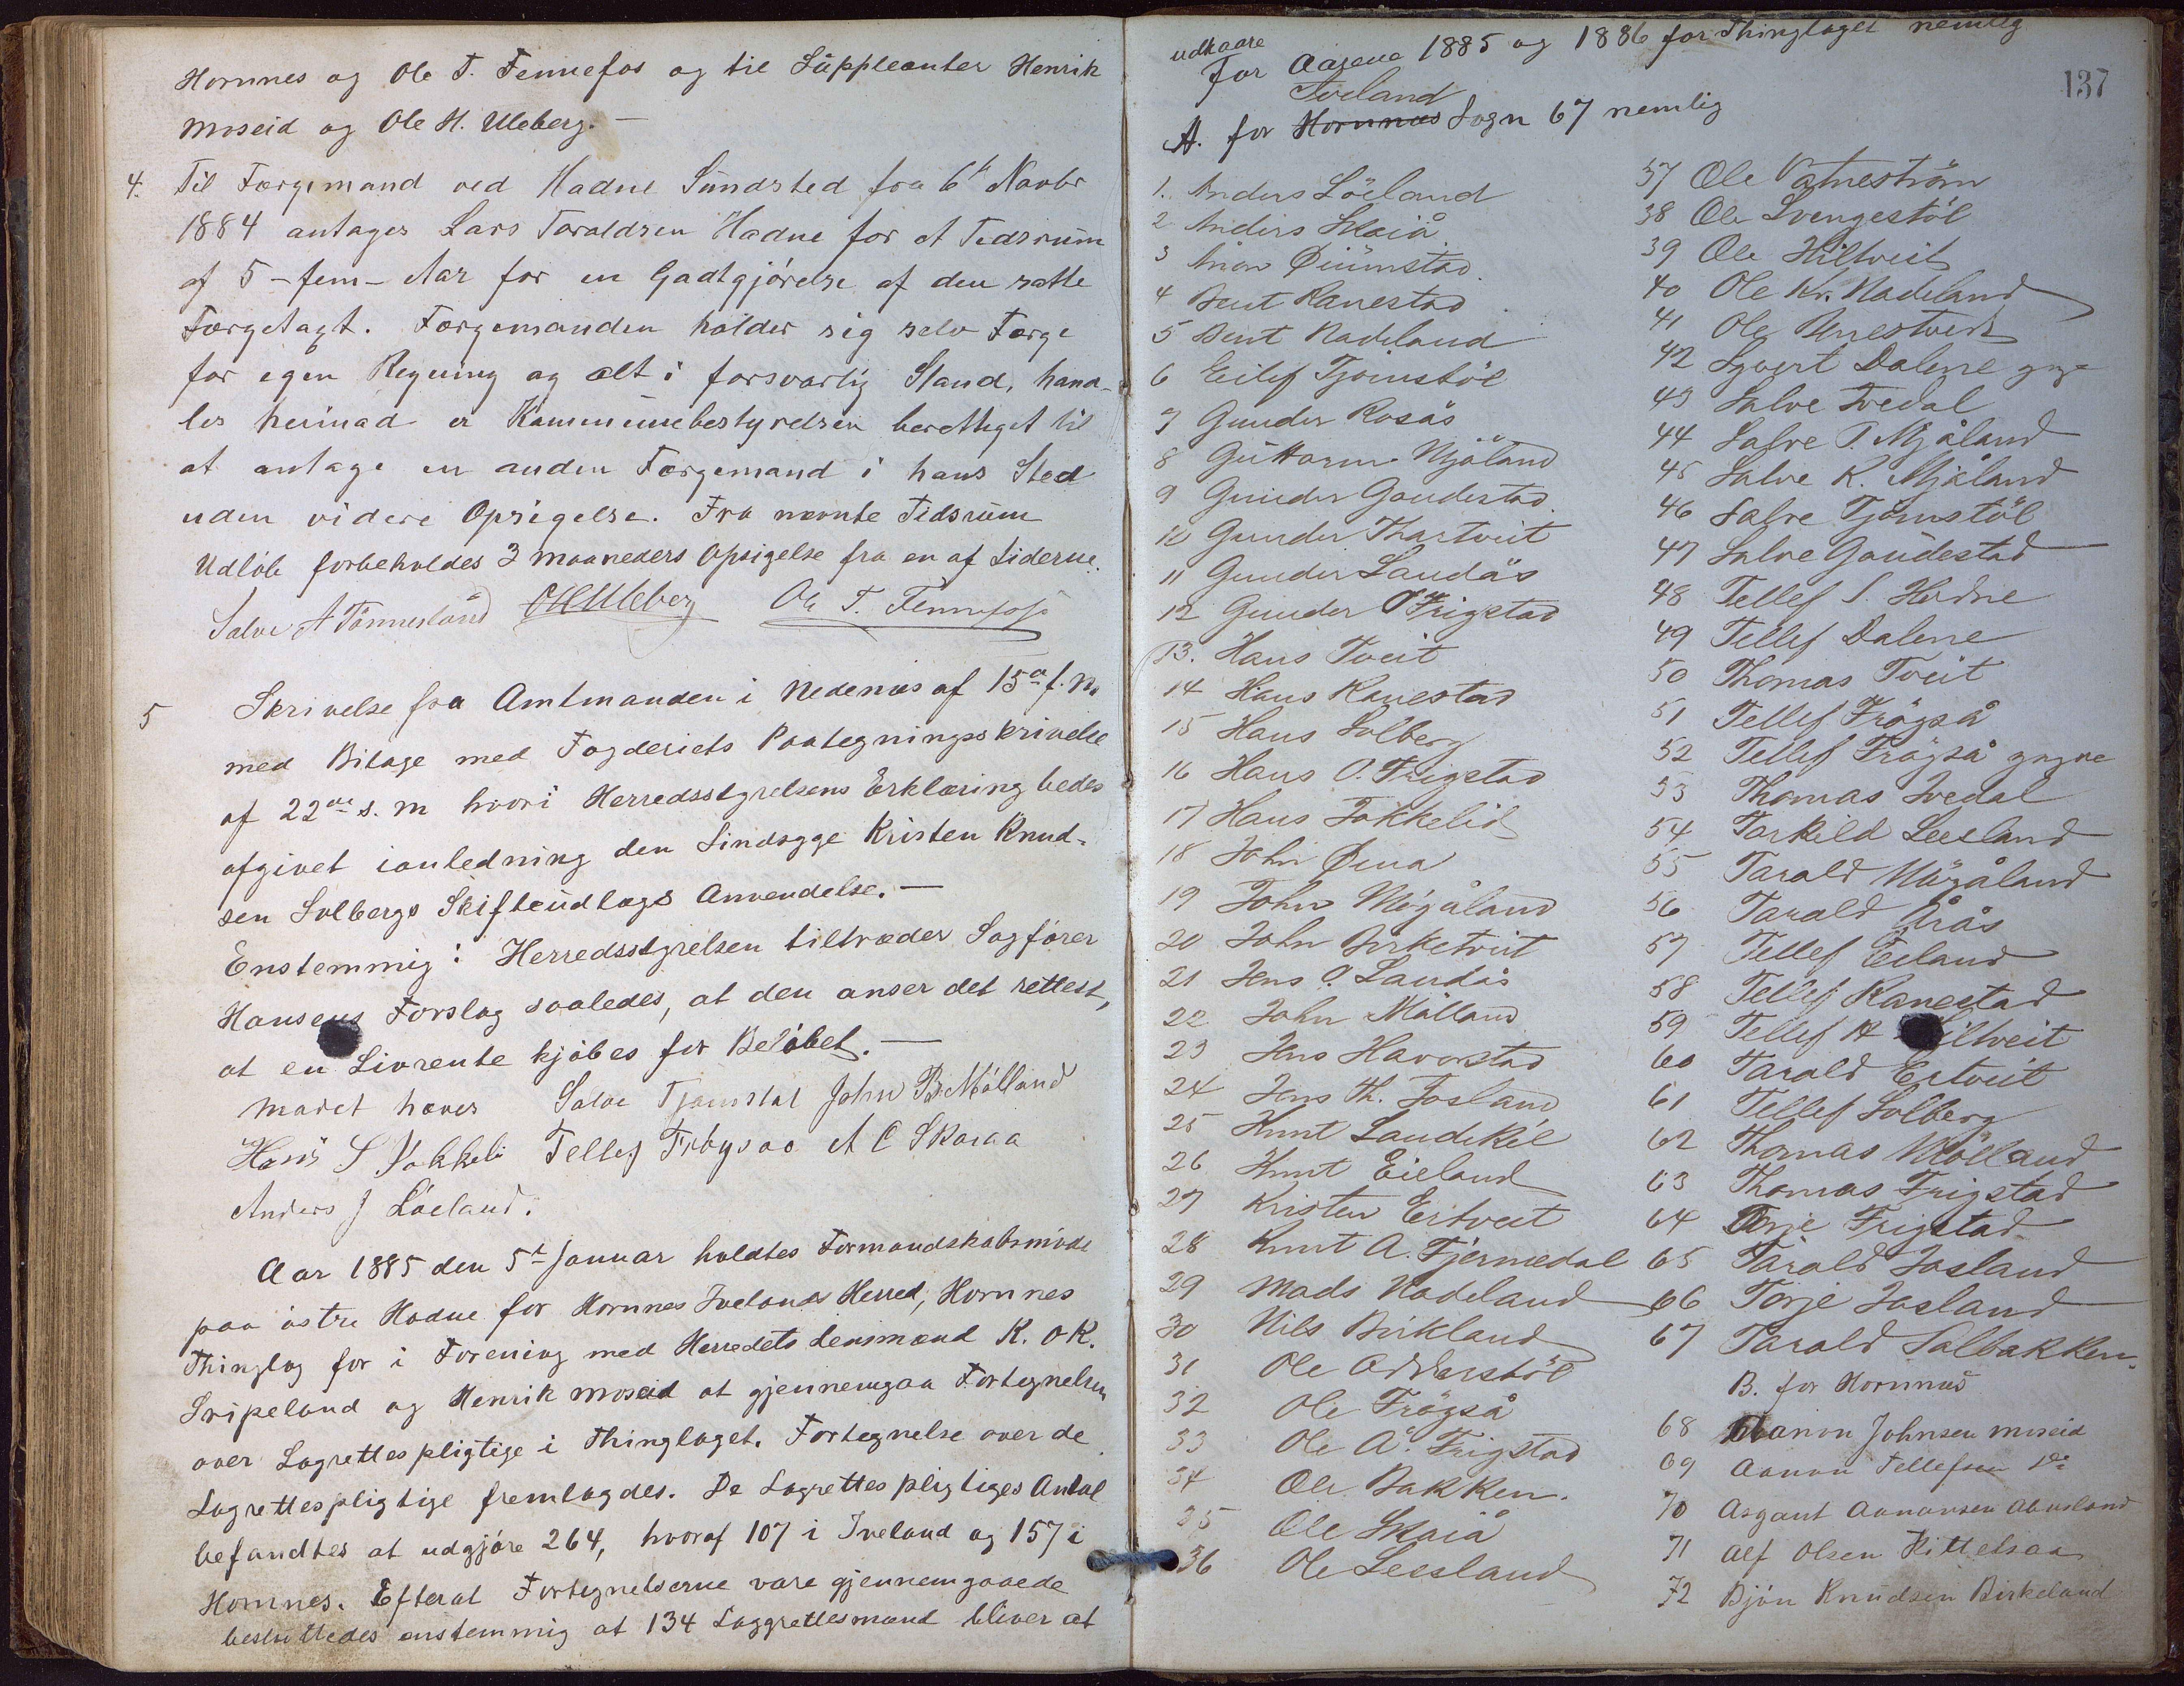 Hornnes og Ole T. Fennefos og til Suppleanter Henrik
Moseid og Ole H. Uleberg. —
4. Til Færgemand ved Hadne Sundsted fra 6t Novbr
1884 antages Lars Taraldsen Hadne for et Tidsrum
af 5 - fem - Aar for en Godtgjørelse af den satte
Færgetagt. Færgemanden holder sig selv Færge
for egen Regning og alt i forsvarlig Stand, hand-
les herimod er Kommunebestyrelsen berettiget til
at antage en anden Færgemand i hans Sted
uden videre Opsigelse. Fra nævnte Tidsrum
Udløb forbeholdes 3 maaneders Opsigelse fra en af Siderne.
Salve A Tønnesland OHUleberg Ole T. Fennefoss
5 Skrivelse fra Amtmanden i Nedenæs af 15de f. M.
med Bilage med Fogderiets Paategningsskrivelse
af 22de s. m hvori Herredsstyrelsens Erklæring bedes
afgivet ianledning den Sindsyge Kristen Knud-
sen Solbergs Skifteudlægs Anvendelse. —
Enstemmig: Herredsstyrelsen tiltræder Sagfører
Hansens Forslag saaledes, at den anser det rettest,
at en Livrente kjøbes for Beløbet. —
Mødet hæves Salve Tjømstøl John B Mölland
Hans S Fokkeli Tellef Frøysaa A C Skaiaa
Anders J Löeland.
Aar 1885 den 5t Januar holdtes Formandskabsmøde
paa østre Hodne for Hornnes Ivelands Herred, Hornnes
Thinglag for i Forening med Herredets Lensmænd K. O K.
Sripeland og Henrik Moseid at gjennemgaa Fortegnelsen
over Lagrettespligtige i Thinglaget. Fortegnelse over de
Lagrettespligtige fremlagdes. De Lagrettespligtiges Antal
befandtes at udgjøre 264, hvoraf 107 i Iveland og 157 i
Hornnes. Efterat Fortegnelserne vare gjennemgaaede
besluttedes enstemmig at 134 Laggrettesmænd bliver at
137
udkaare
For Aarene 1885 og 1886 for Thinglaget nemlig
Iveland
A. for Hornnes Sogn 67 nemlig
1. Anders Löeland
2 Anders Skaiå
3 Anon
4 Bent Ranestad
5 Bent Nadeland
6 Eilef Tjömstöl
7 Gunder Rosås
8 Guttorm Mjåland
9 Gunder Gaudestad
10 Gunder Thortveit
11 Gunder Landås
12 Gunder O Frigstad
13. Hans Tveit
14 Hans Ranestad
15 Hans Solberg
16 Hans O. Frigstad
17 Hans Fokkelid
18 John
19 John Møgåland
20 John Birketveit
21 Jens O. Landås
22 John Mölland
23 Jens Havorstad
24 Jens Th. Josland
25 Knut Landekil
26 Knut Eieland
27 Kristen Eertveit
28 Knut A. Fjermedal
29 Mads Nadeland
30 Nils Birkland
31 Ole
32 Ole Frögså
33 Ole A. Frigstad
34 Ole Bakken.
35 Ole Skaiå
36 Ole Leesland
37 Ole Vatneström
38 Ole Svengestöl
39 Ole Hiltveit
40 Ole Kr. Nadeland
41 Ole Unestveit
42 Syvert Dalene yngre
43 Salve Ivedal
44 Salve T. Mjåland
45 Salve K. Mjåland
46 Salve Tjömstöl
47 Salve Gaudestad
48 Tellef S. Hodne
49 Tellef Dalene
50 Thomas Tveit
51 Tellef Frögså
52 Tellef Frögså yngre
53 Thomas Ivedal
54 Tarkild Leesland
55 Tarald Mögåland
56 Tarald Årås
57 Tellef Eieland
58 Tellef Ranestad
59 Tellef H Hiltveit
60 Tarald Eertveit
61 Tellef Solberg
62 Thomas Mölland
63 Thomas Frigstad
64 Terje Frigstad
65 Tarald Josland
66 Terje Josland
67 Tarald Solbakken.
B. for Hornnes
68 Aanon Johnsen Moseid
69 Aanon Tellefsen do
70 Asgaut Aanonsen Abusland
71 Alf Olsen Kittelsaa
72 Bjön Knudsen Birkeland